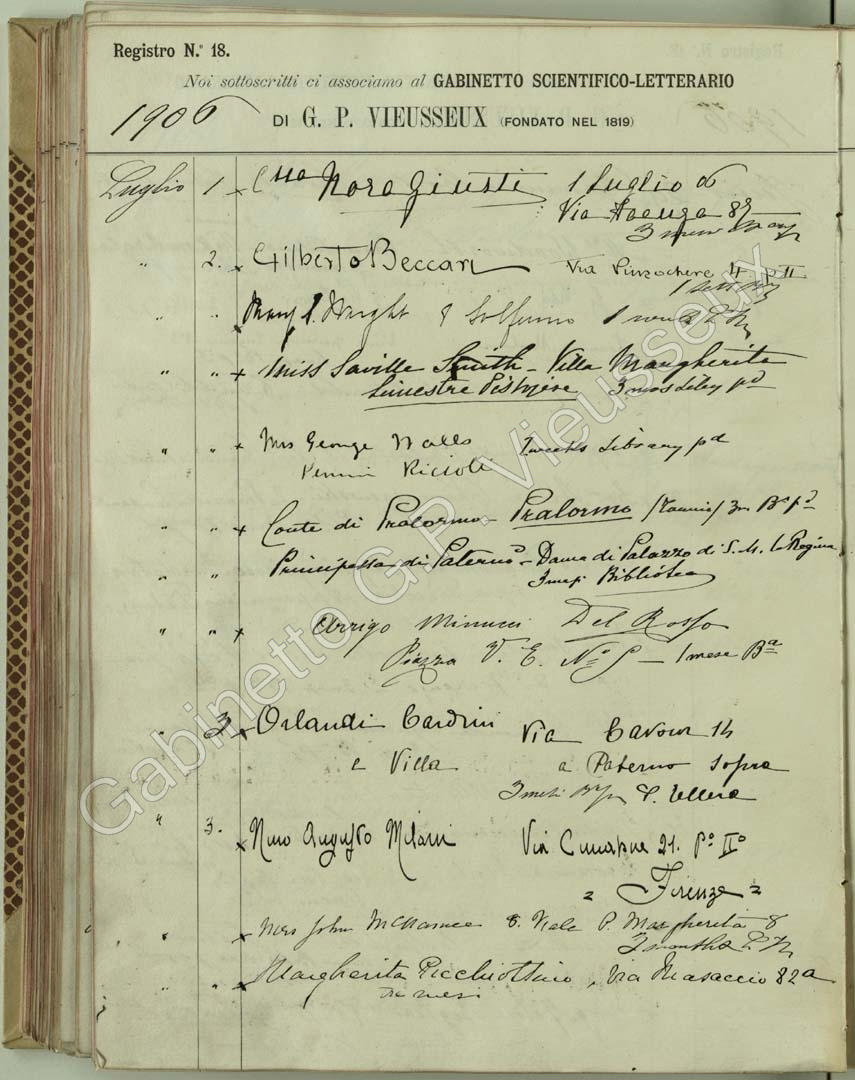 Registro N.° 18.
Noi sottoscritti ci associamo al GABINETTO SCIENTIFICO-LETTERARIO
1906 DI G. P. VIEUSSEUX (FONDATO NEL 1819)
Luglio 1 x C.ssa Nora Giusti 1 luglio 06
Via Faenza
3 mesi
" 2. x Gilberto Beccari Via Pinzochere 4 p II
1
" " x Wright 8 Solferino 1
" " x Miss Saville Smith - Villa Margherita
3 mos Liby pd
" " x Mrs George Walls weeks Library pd
Riccioli
" " x Conte di Pralormo - Pralormo
" " Principessa di Paternò - Dama di Palazzo di S. M. la Regina
3 mesi Biblioteca
" " x Arrigo Minucci Del Rosso
Piazza V. E. N.° 5 - 1 mese Ba
" 3 x Orlandi Cardini Via Cavour 14
e Villa a Paterno Sopra
3 mesi
" 3. x Nino Augusto Milani Via 21. P.° II°
= Firenze =
" " x Mrs John McNamee 8. Viale P. Margherita 8
3 months
" " x Margherita Via Masaccio 82a
tre mesi
Gabinetto G.P. Vieusseux